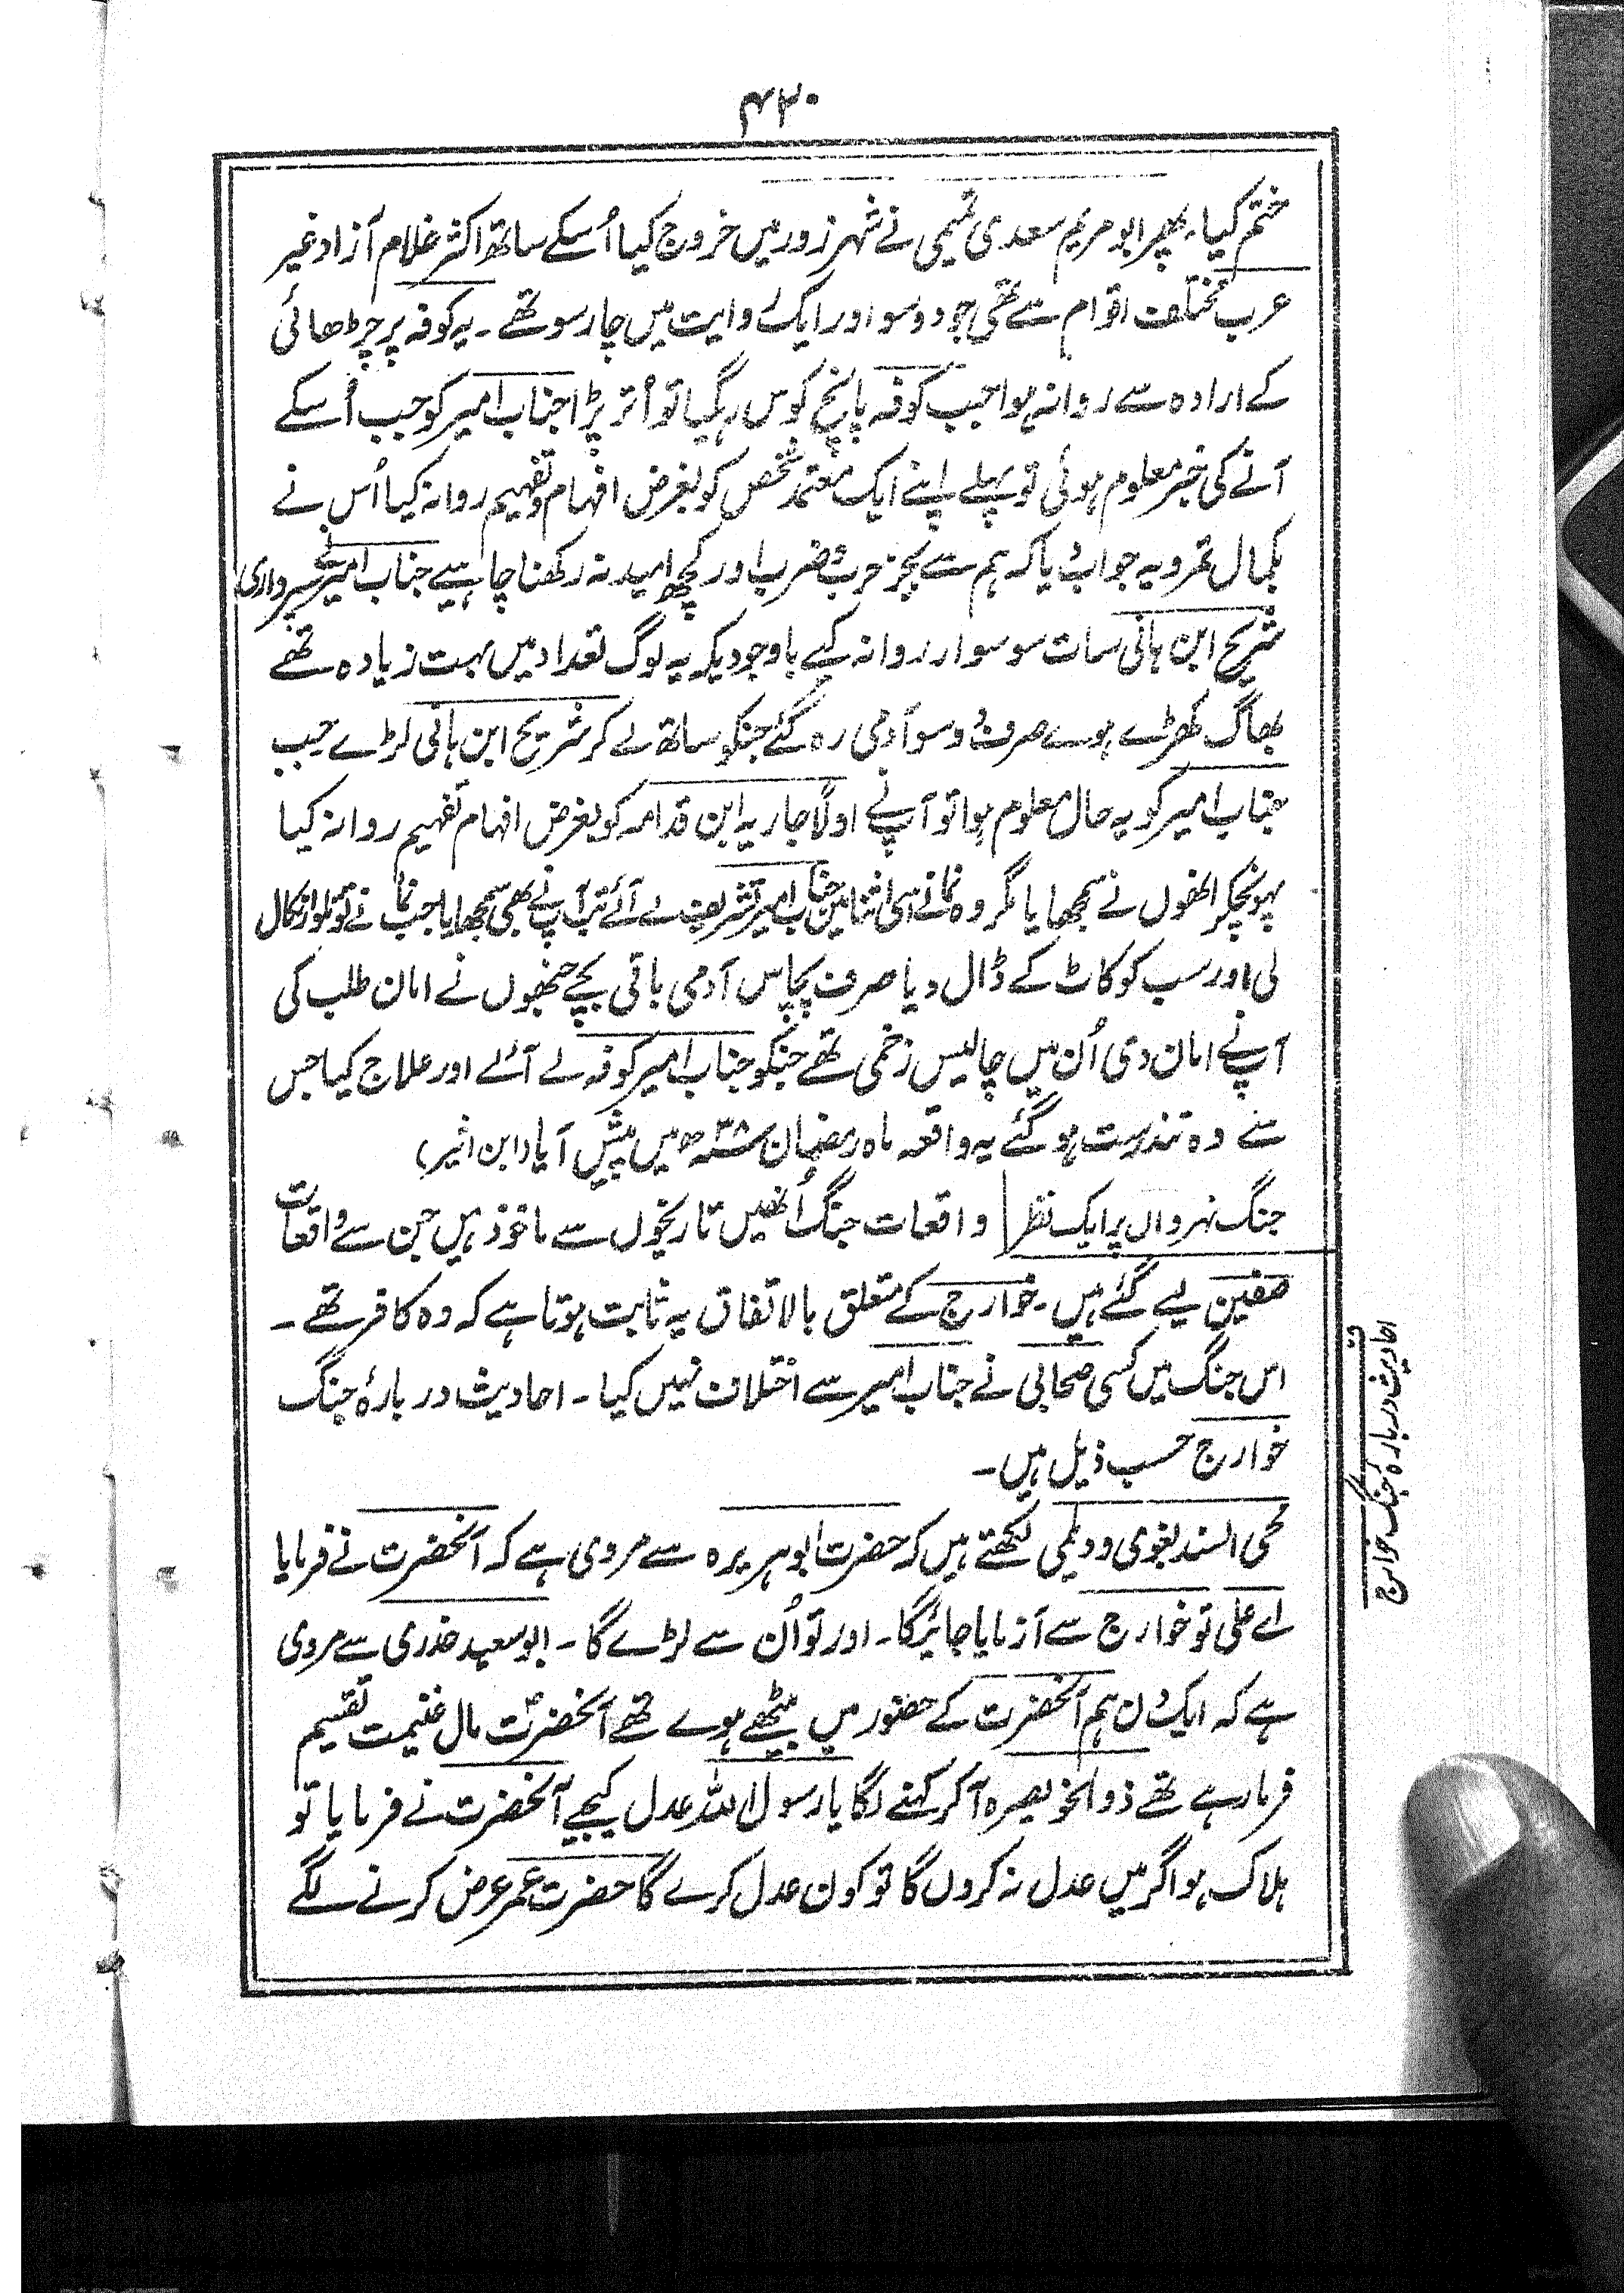 ۴۲۰
ختم کیا۔ پھر ابو مریم سعدی تمیمی نے شہر زور میں خروج کیا اُسکے ساتھ اکثر غلام آزاد غیر
عرب مختلف اقوام سے تھی جو دو سو اور ایک روایت میں چار سو تھے۔ یہ کوفہ پر چڑھائی
کے ارادہ سے روانہ ہوا جب کوفہ پانچ کوس رہگیا تو اُتر پڑا جناب امیر کو جب اُسکے
آنے کی خبر معلوم ہوئی تو پہلے اپنے ایک معتمد شخص کو بغرض افہام و تفہیم روانہ کیا اُس نے
بکمال تمرد یہ جواب دیا کہ ہم سے بجز حرب و ضرب اور کچھ امید نہ رکھنا چاہیے جناب امیر نے بسرداری
شریح ابن ہانی سات سو سوار روانہ کیے باوجودیکہ یہ لوگ تعداد میں بہت زیادہ تھے
بھاگ کھڑے ہوے صرف دو سو آدمی رہ گئے جنکو ساتھ لے کر شریح ابن ہانی لڑے جب
جناب امیر کو یہ حال معلوم ہوا تو آپ نے اولاً جاریہ ابن قدامہ کو بغرض افہام تفہیم روانہ کیا
پہونچکر انھوں نے سمجھایا مگر وہ نمانے اسی اثنا میں جناب امیر تشریف لے آئے تب آپ نے بھی سمجھایا جب نمانے تو تلوار نکال
لی اور سب کو کاٹ کے ڈال دیا صرف پچاس آدمی باقی بچے جنھوں نے امان طلب کی
آپ نے امان دی اُن میں چالیس زخمی تھے جنکو جناب امیر کوفہ لے آئے اور علاج کیا جس
سے وہ تندرست ہو گئے یہ واقعہ ماہ رمضان ۳۸ھ میں پیش آیا (ابن اثیر)
جنگ نہروان پر ایک نظر | واقعات جنگ اُنھیں تاریخوں سے ماخوذ ہیں جن سے واقعات
صفین لیے گئے ہیں۔ خوارج کے متعلق بالاتفاق یہ ثابت ہوتا ہے کہ وہ کافر تھے۔
اس جنگ میں کسی صحابی نے جناب امیر سے اختلاف نہیں کیا۔ احادیث دربارۂ جنگ
خوارج حسب ذیل ہیں۔
محی السنہ بغوی و دیلمی لکھتے ہیں کہ حضرت ابو ہریرہ سے مروی ہے کہ آنحضرت نے فرمایا
اے علی تو خوارج سے آزمایا جائیگا۔ اور تو اُن سے لڑے گا۔ ابو سعید خدری سے مروی
ہے کہ ایک دن ہم آنحضرت کے حضور میں بیٹھے ہوے تھے آنحضرت مال غنیمت تقسیم
فرما رہے تھے ذو الخویصرہ آ کر کہنے لگا یا رسول اللہ عدل کیجیے آنحضرت نے فرمایا تو
ہلاک ہو اگر میں عدل نہ کروں گا تو کون عدل کرے گا حضرت عمر عرض کرنے لگے
احادیث دربارۂ جنگ خوارج